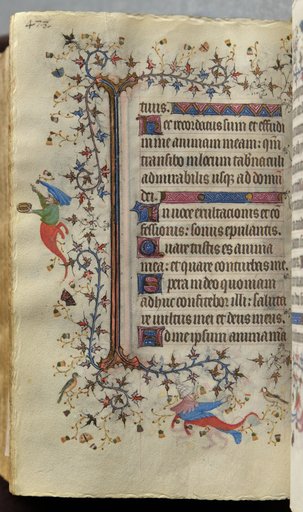 473
tuus.
Hec recordatus sum et effudi
in me animam meam: qm̄
transibo in locum tabnaculi
admirabilis usq; ad domū
dei.
In uoce exultacionis et cō
fessionis: sonus epulantis.
Quare tristis es anima
mea: et quare conturbas me.
Spera in deo quoniam
adhuc confitebor illi: saluta
re uultus mei et deus meus.
Ad me ipsum anima mā